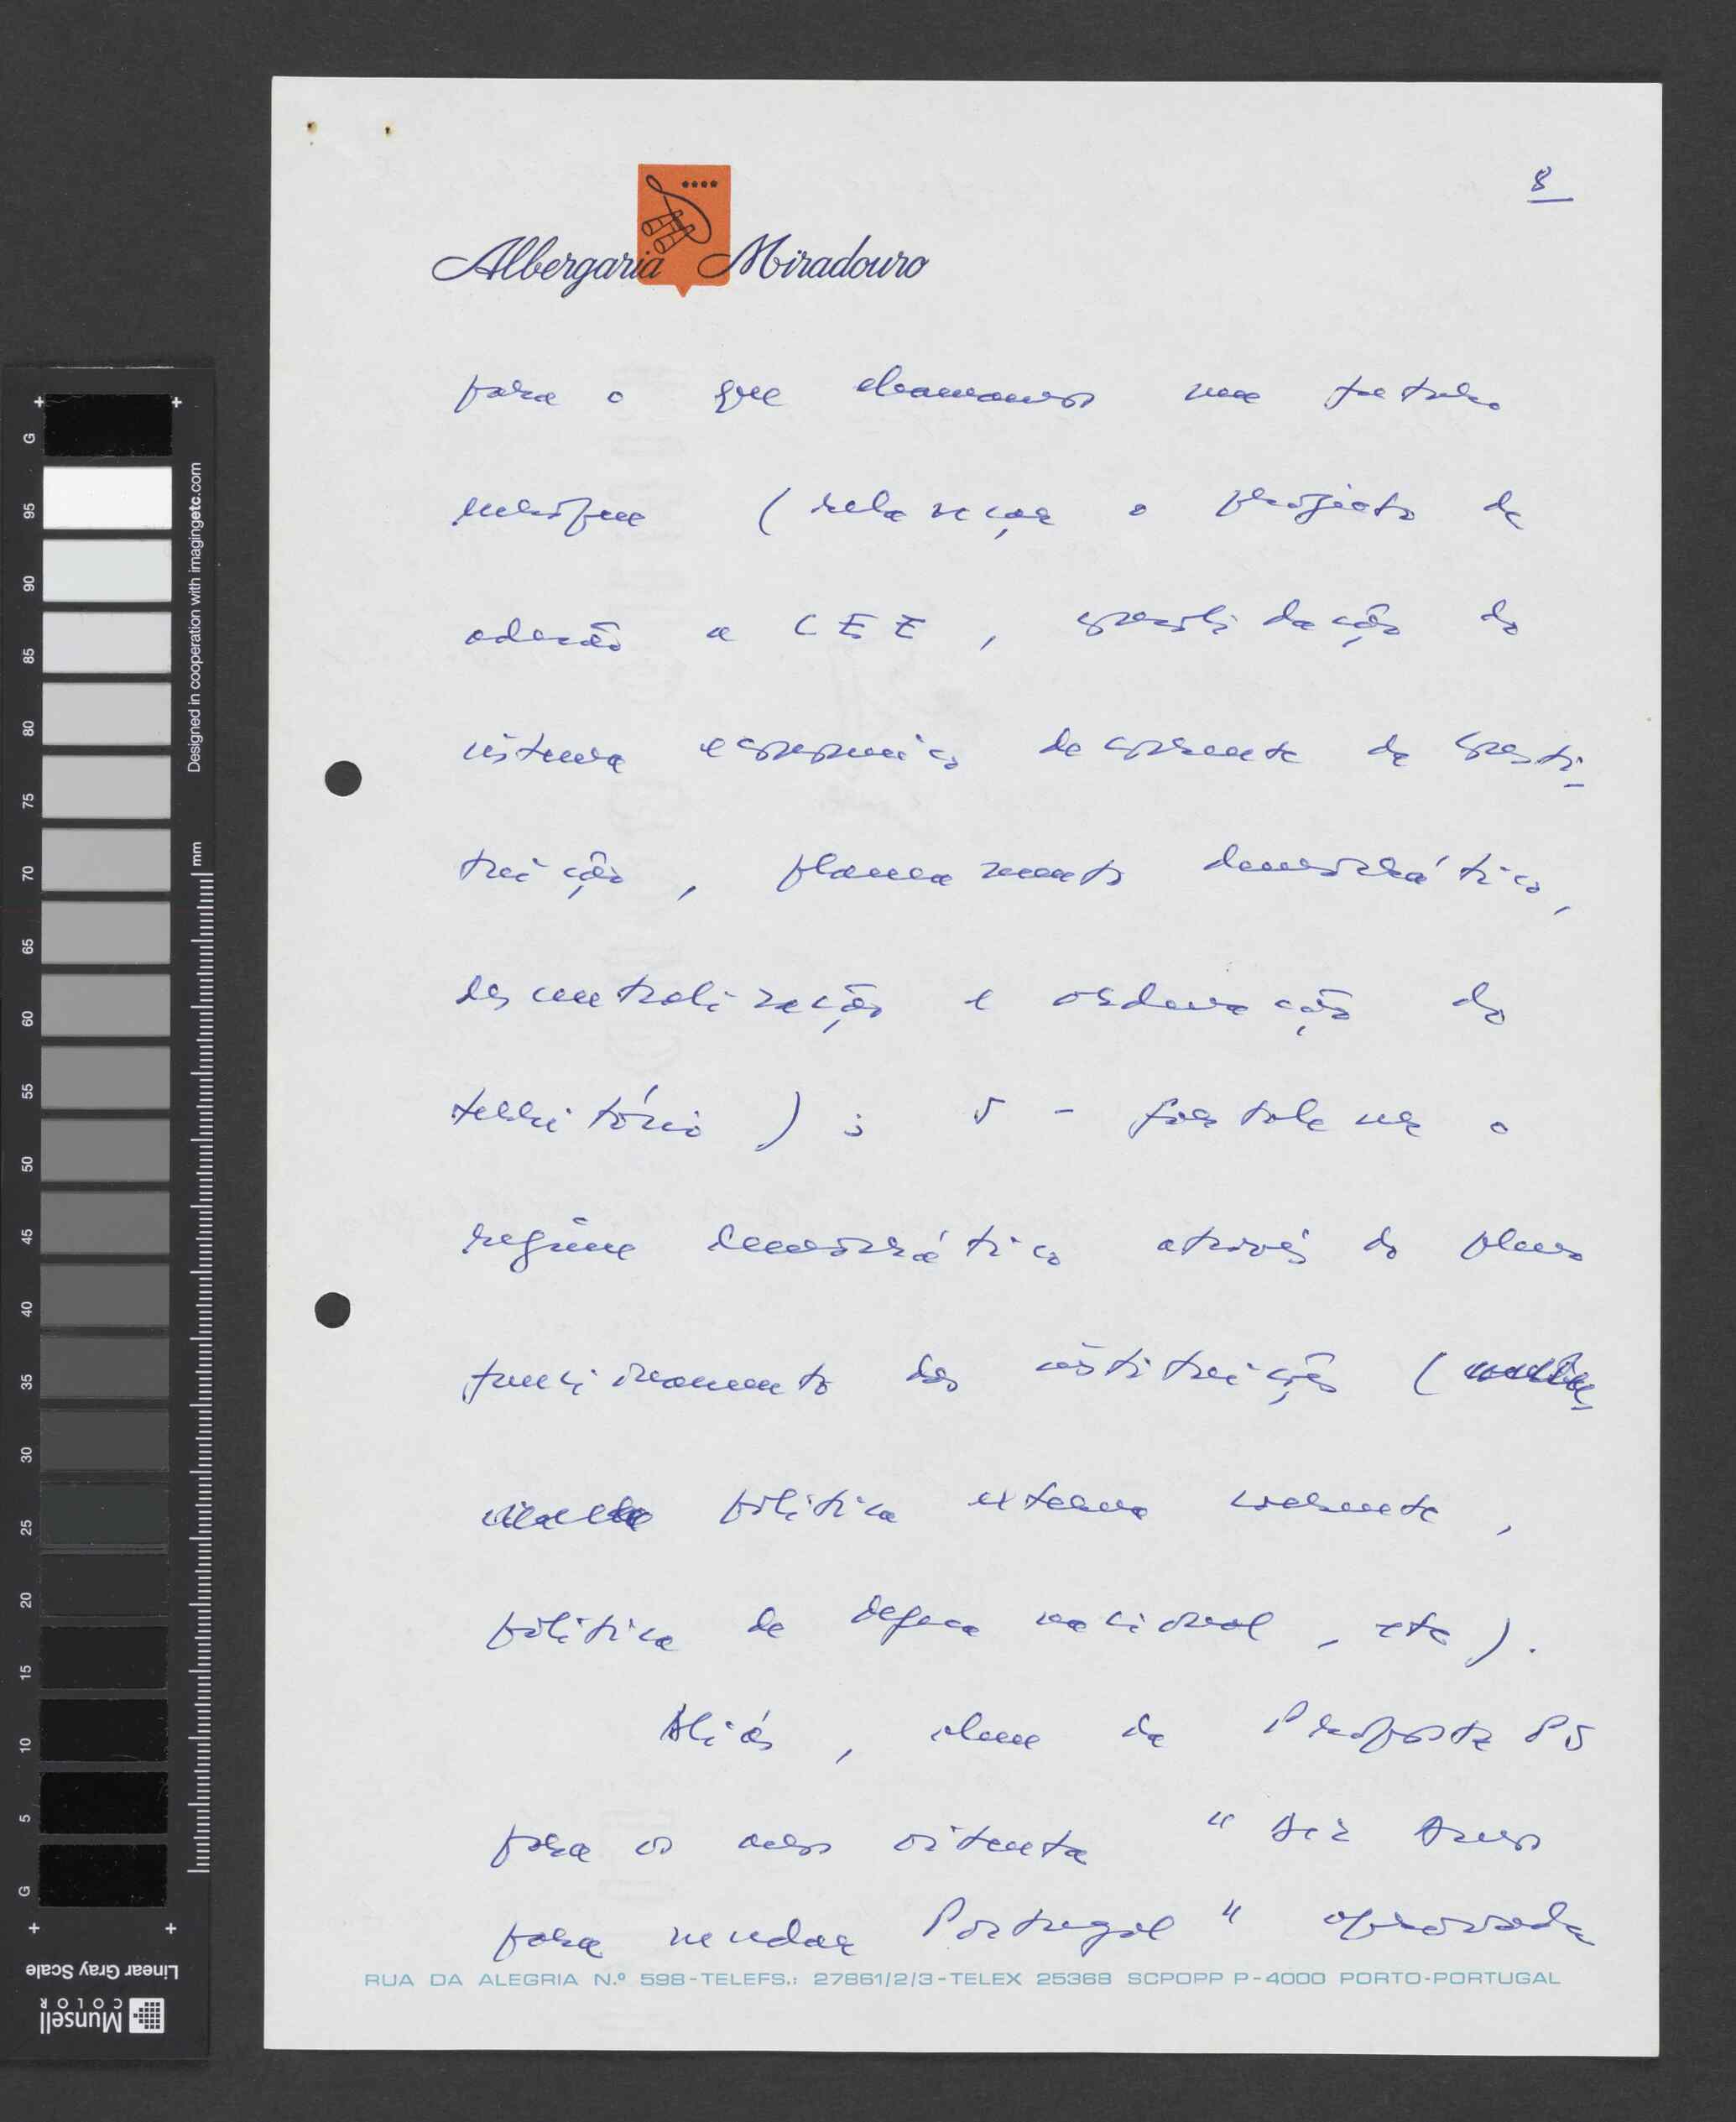 8
Albergaria Miradouro
para o que chamamos um futuro
europeu (relançar o projecto de
adesão a CEE, consolidação do
sistema económico decorrente da Consti-
tuição, planeamento democrático,
descentralização e ordenação do
território); 5 - fortalecer o
regime democrático através do pleno
funcionamento das instituições (
política externa coerente,
política de defesa nacional, etc).
Aliás, além da Proposta PS
para os anos oitenta "Dez Anos
para mudar Portugal" aprovada
RUA DA ALEGRIA N.º 598-TELEFS.: 27861/2/3-TELEX 25368 SCPOPP P-4000 PORTO-PORTUGAL
G 95 90 85 80 75 70 65 60 55 50 45 40 35 30 25 20 15 10 5 G
Designed in cooperation with imagingetc.com
mm
Linear Gray Scale
Munsell
COLOR